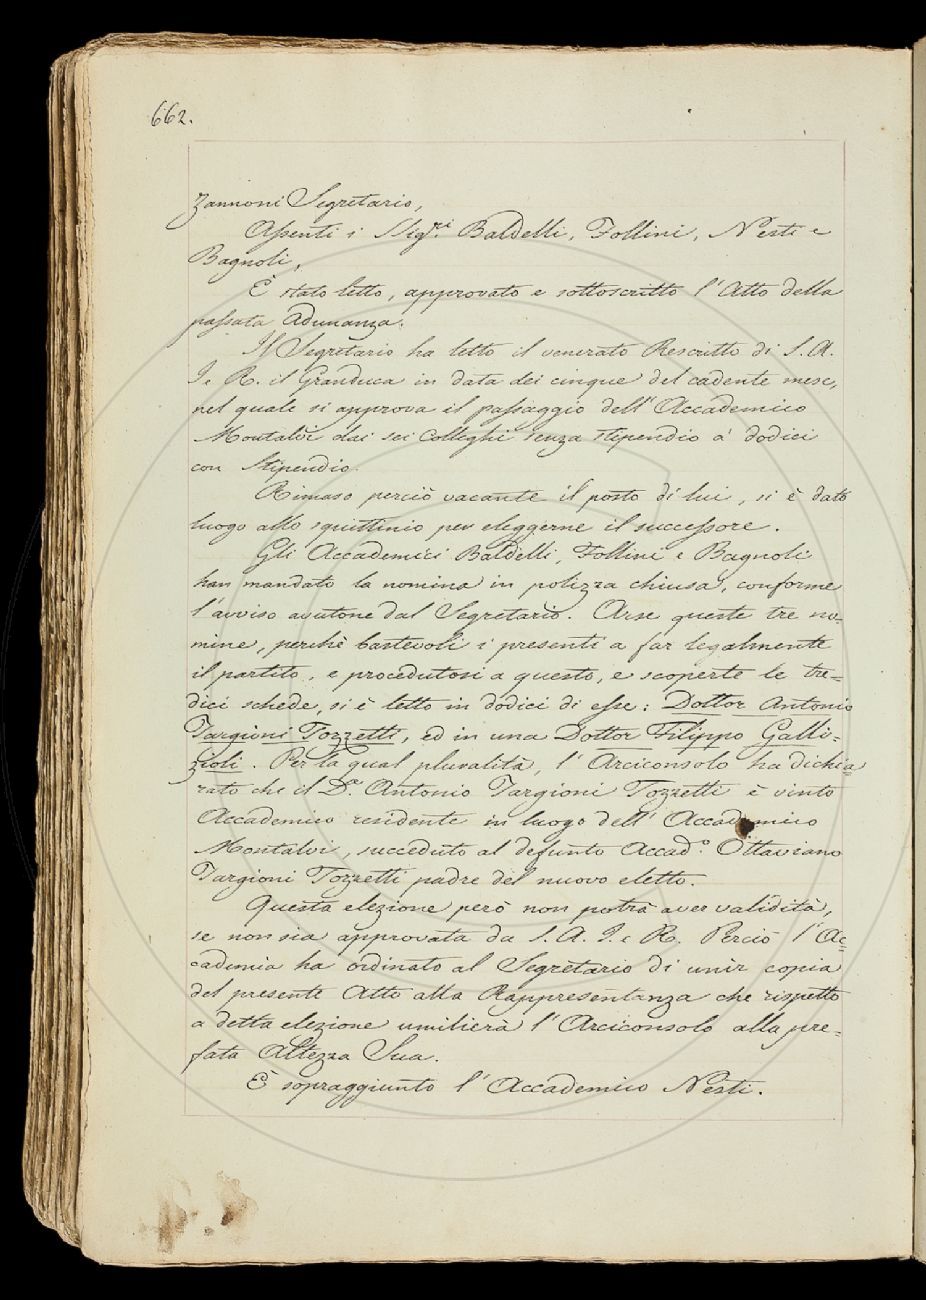 662.
Zannoni Segretario,
Assenti i Sig.ri Baldelli, Follini, Nesti e
Bagnoli,
È stato letto, approvato e sottoscritto l'Atto della
passata Adunanza.
Il Segretario ha letto il venerato Rescritto di S. A.
I. e R. il Granduca in data dei cinque del cadente mese,
nel quale si approva il passaggio dell'Accademico
Montalvi dai sei Colleghi senza stipendio a' dodici
con Stipendio.
Rimaso perciò vacante il posto di lui, si è dato
luogo allo squittinio per eleggerne il successore.
Gli Accademici Baldelli, Follini e Bagnoli
han mandato la nomina in polizza chiusa, conforme
l'avviso avutone dal Segretario. Arse queste tre no-
mine, perchè bastevoli i presenti a far legalmente
il partito, e procedutosi a questo, e scoperte le tre=
dici schede, si è letto in dodici di esse: Dottor Antonio
Targioni Tozzetti, ed in una Dottor Filippo Galli=
zioli. Per la qual pluralità, l'Arciconsolo ha dichia=
rato che il D.r Antonio Targioni Tozzetti è vinto
Accademico residente in luogo dell'Accademico
Montalvi, succeduto al defunto Accad.o Ottaviano
Targioni Tozzetti padre del nuovo eletto.
Questa elezione però non potrà aver validità,
se non sia approvata da S. A. I. e R. Perciò l'Ac=
cademia ha ordinato al Segretario di unir copia
del presente Atto alla Rappresentanza che rispetto
a detta elezione umilierà l'Arciconsolo alla pre=
fata Altezza Sua.
È sopraggiunto l'Accademico Nesti.